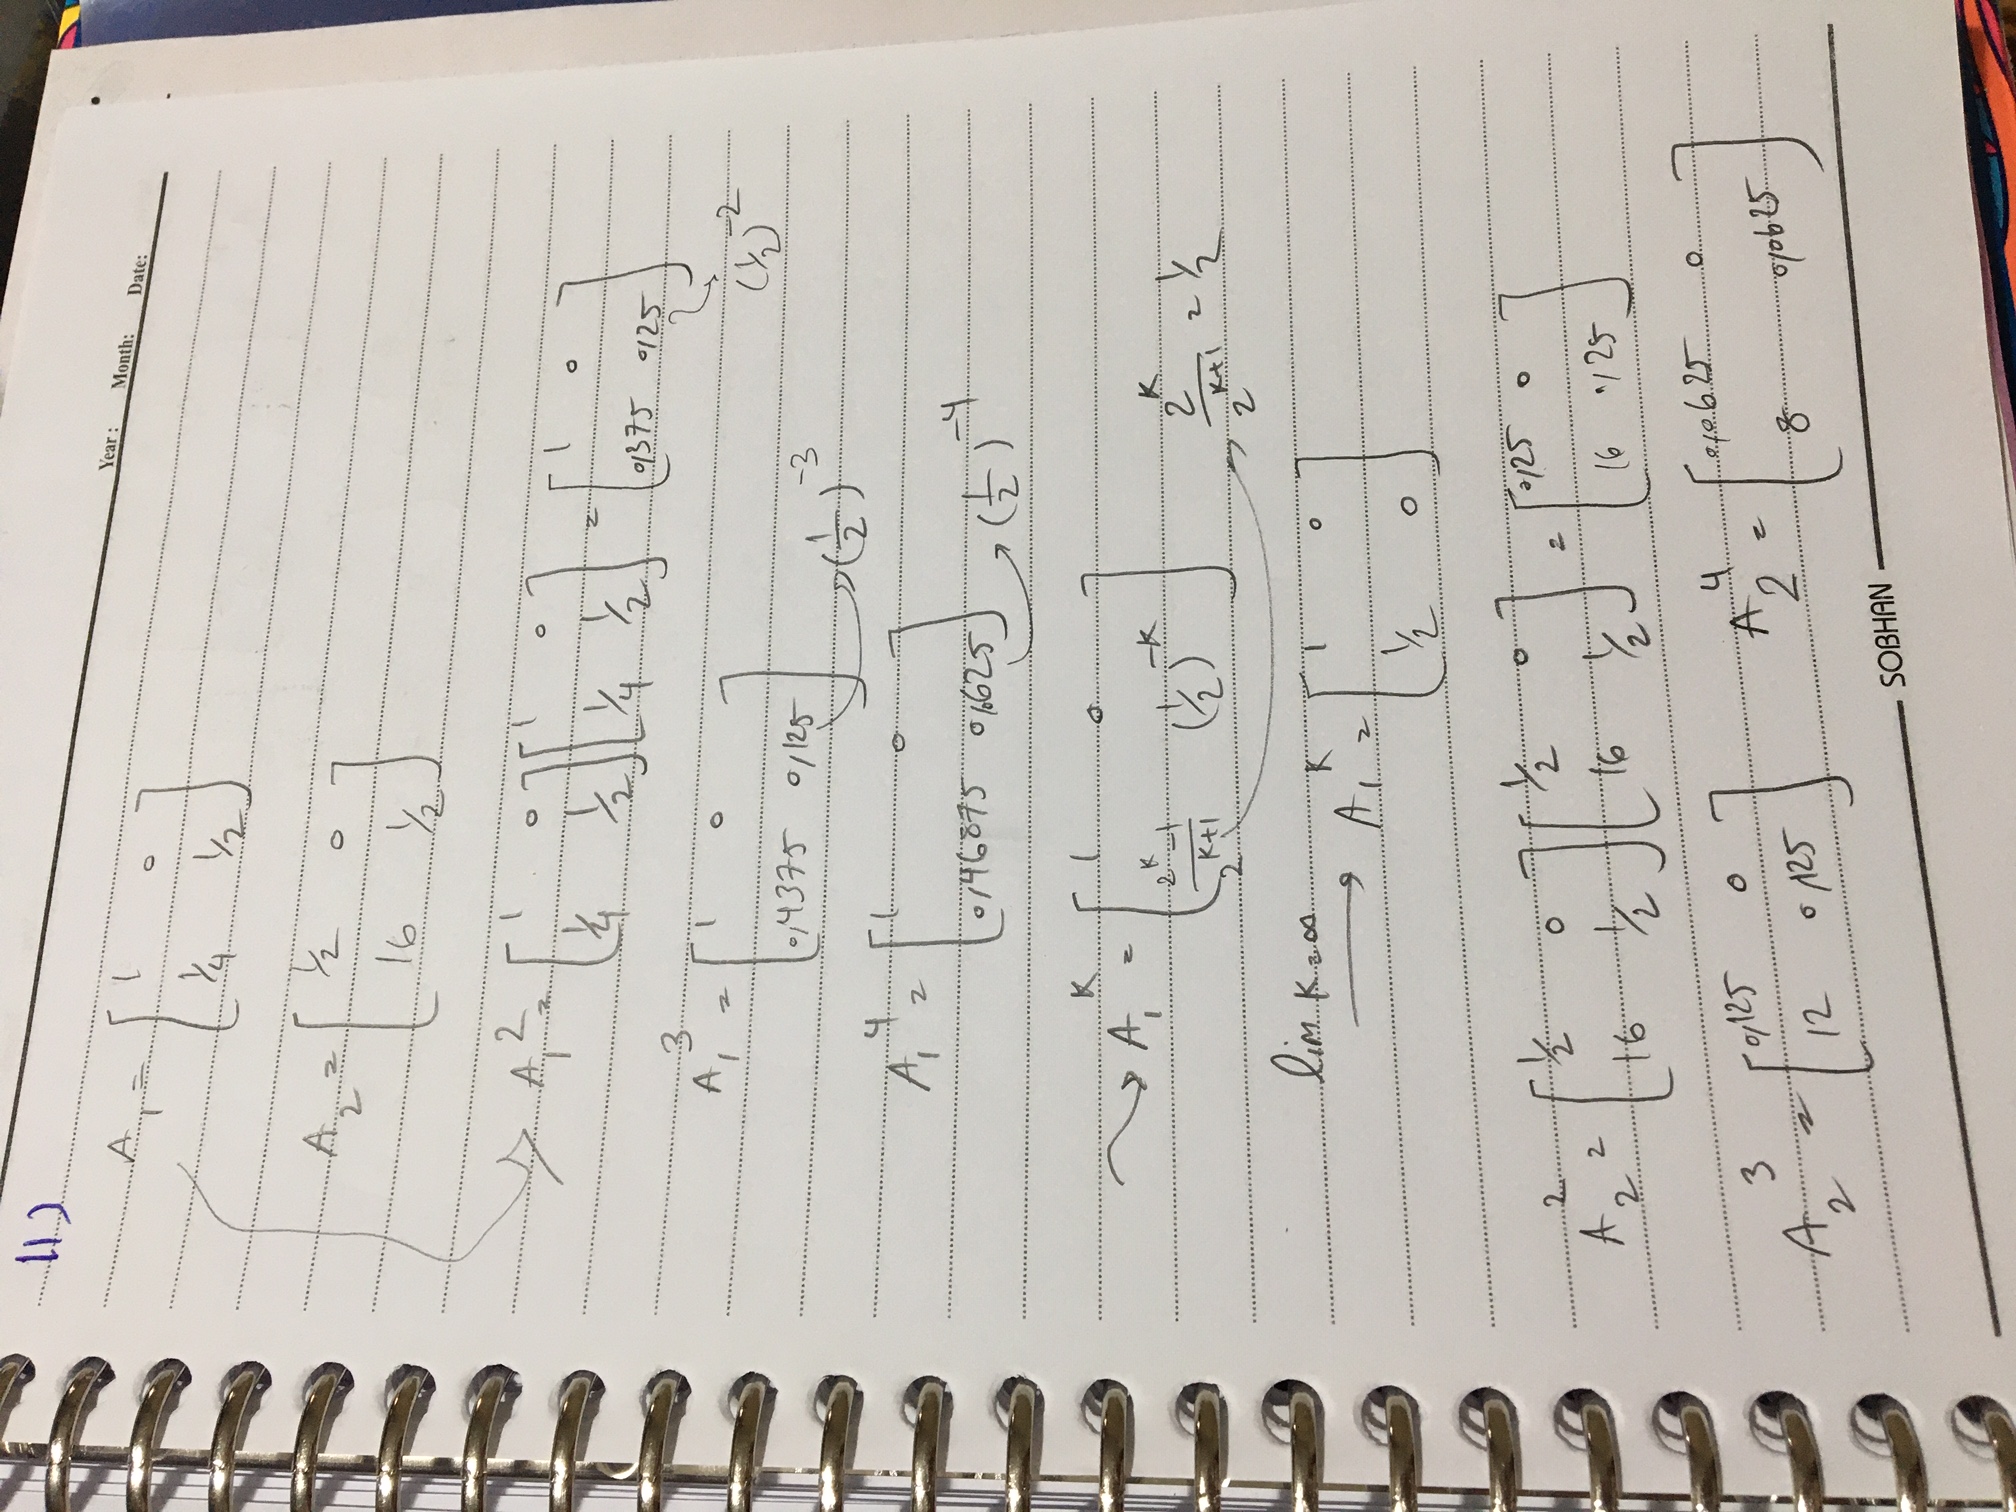 11)
Year: Month: Date:
A₁ = [ 1 0
1/4 1/2 ]
A₂ = [ 1/2 0
16 1/2 ]
A₁² = [ 1 0 ] [ 1 0 ] = [ 1 0
1/4 1/2 ] [ 1/4 1/2 ] [ 0,375 0,25 ]
(1/2)⁻²
A₁³ = [ 1 0
0,4375 0,125 ] → (1/2)⁻³
A₁⁴ = [ 1 0
0,46875 0,0625 ] → (1/2)⁻⁴
→ A₁ᴷ = [ 1 0
(2ᴷ-1)/2ᴷ⁺¹ (1/2)⁻ᴷ ] → 2ᴷ/2ᴷ⁺¹ = 1/2
lim K=∞ → A₁ᴷ = [ 1 0
1/2 0 ]
A₂² = [ 1/2 0 ] [ 1/2 0 ] = [ 0,25 0
16 1/2 ] [ 16 1/2 ] [ 16 0,25 ]
A₂³ = [ 0,125 0
12 0,125 ]
A₂⁴ = [ 0,0625 0
8 0,0625 ]
SOBHAN